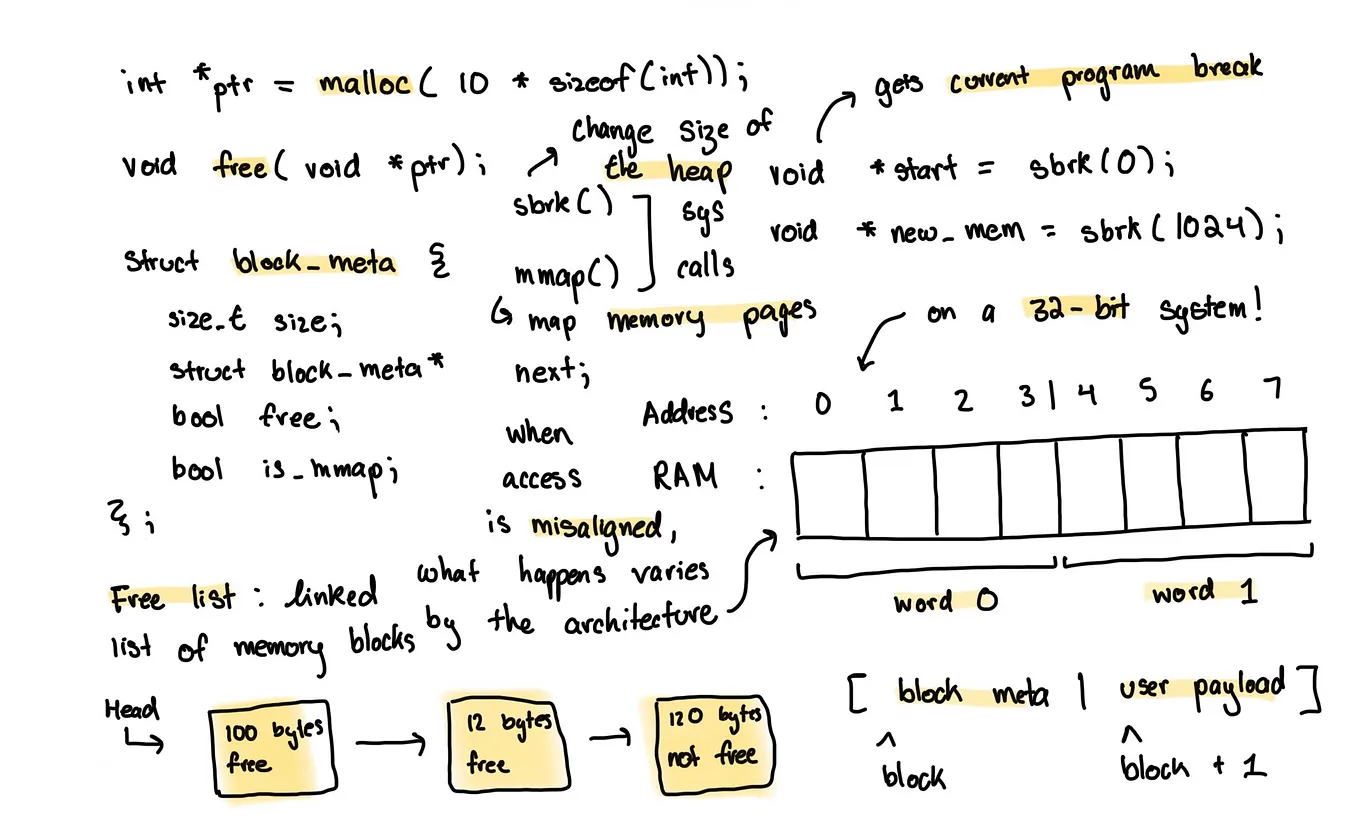 int *ptr = malloc( 10 * sizeof(int));
void free( void *ptr);
struct block_meta {
size_t size;
struct block_meta* next;
bool free;
bool is_mmap;
};
change size of
the heap
sbrk()
mmap()
sys
calls
map memory pages
gets current program break
void *start = sbrk(0);
void *new_mem = sbrk(1024);
on a 32-bit system!
Address : 0 1 2 3 | 4 5 6 7
RAM :
word 0 word 1
when
access
is misaligned,
what happens varies
by the architecture
Free list : linked
list of memory blocks
Head
100 bytes
free
12 bytes
free
120 bytes
not free
[ block meta | user payload ]
^ ^
block block + 1